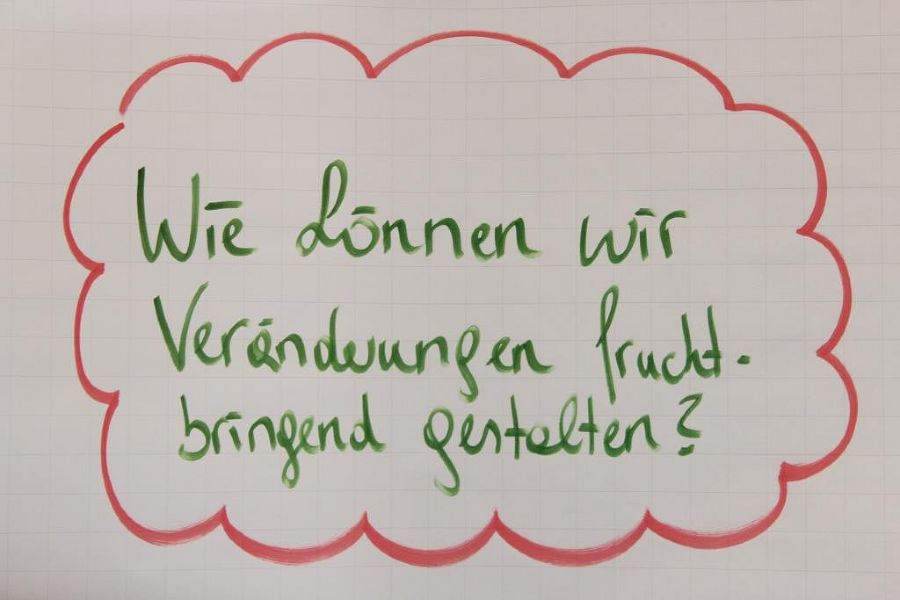 Wie können wir
Veränderungen frucht-
bringend gestalten?